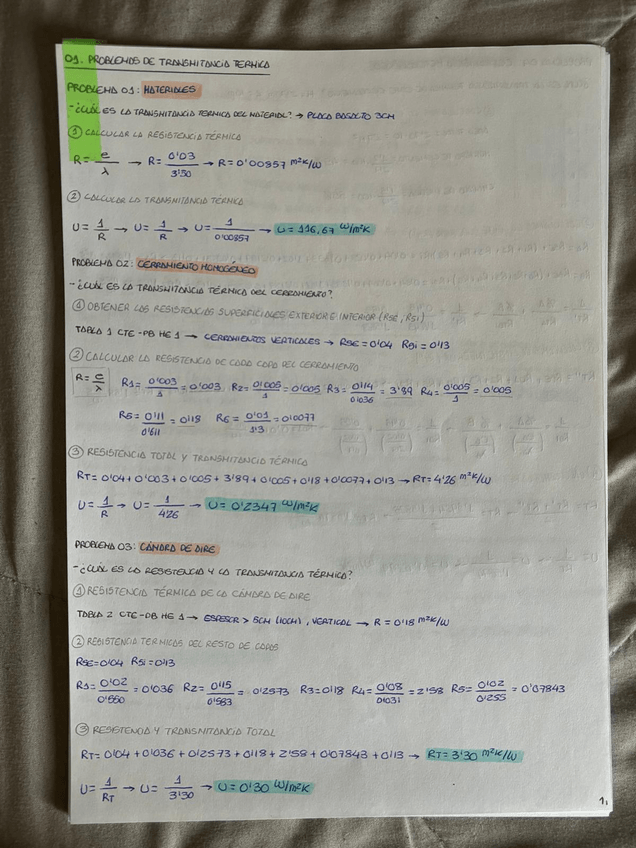 01. PROBLEMAS DE TRANSMITANCIA TERMICA
PROBLEMA 01: MATERIALES
- ¿CUÁL ES LA TRANSMITANCIA TERMICA DEL MATERIAL? → PLACA BASALTO 3CM
① CALCULAR LA RESISTENCIA TÉRMICA
R = e/λ → R = 0'03/3'50 → R = 0'00857 m²K/W
② CALCULAR LA TRANSMITANCIA TÉRMICA
U = 1/R → U = 1/R → U = 1/0'00857 → U = 116,67 W/m²K
PROBLEMA 02: CERRAMIENTO HOMOGÉNEO
- ¿CUÁL ES LA TRANSMITANCIA TÉRMICA DEL CERRAMIENTO?
① OBTENER LAS RESISTENCIAS SUPERFICIALES EXTERIOR E INTERIOR (RSE, RSI)
TABLA 1 CTE-DB HE 1 → CERRAMIENTOS VERTICALES → RSE = 0'04 RSI = 0'13
② CALCULAR LA RESISTENCIA DE CADA CAPA DEL CERRAMIENTO
R = e/λ R1 = 0'003/1 = 0'003 R2 = 0'005/1 = 0'005 R3 = 0'14/0'036 = 3'89 R4 = 0'005/1 = 0'005
R5 = 0'11/0'611 = 0'18 R6 = 0'01/1'3 = 0'0077
③ RESISTENCIA TOTAL Y TRANSMITANCIA TÉRMICA
RT = 0'04 + 0'003 + 0'005 + 3'89 + 0'005 + 0'18 + 0'0077 + 0'13 → RT = 4'26 m²K/W
U = 1/R → U = 1/4'26 → U = 0'2347 W/m²K
PROBLEMA 03: CÁMARA DE AIRE
- ¿CUÁL ES LA RESISTENCIA Y LA TRANSMITANCIA TÉRMICA?
① RESISTENCIA TÉRMICA DE LA CÁMARA DE AIRE
TABLA 2 CTE-DB HE 1 → ESPESOR > 5CM (10CM), VERTICAL → R = 0'18 m²K/W
② RESISTENCIA TERMICAS DEL RESTO DE CAPAS
RSE = 0'04 RSI = 0'13
R1 = 0'02/0'550 = 0'036 R2 = 0'15/0'583 = 0'2573 R3 = 0'18 R4 = 0'08/0'031 = 2'58 R5 = 0'02/0'255 = 0'07843
③ RESISTENCIA Y TRANSMITANCIA TOTAL
RT = 0'04 + 0'036 + 0'2573 + 0'18 + 2'58 + 0'07843 + 0'13 → RT = 3'30 m²K/W
U = 1/RT → U = 1/3'30 → U = 0'30 W/m²K
1.